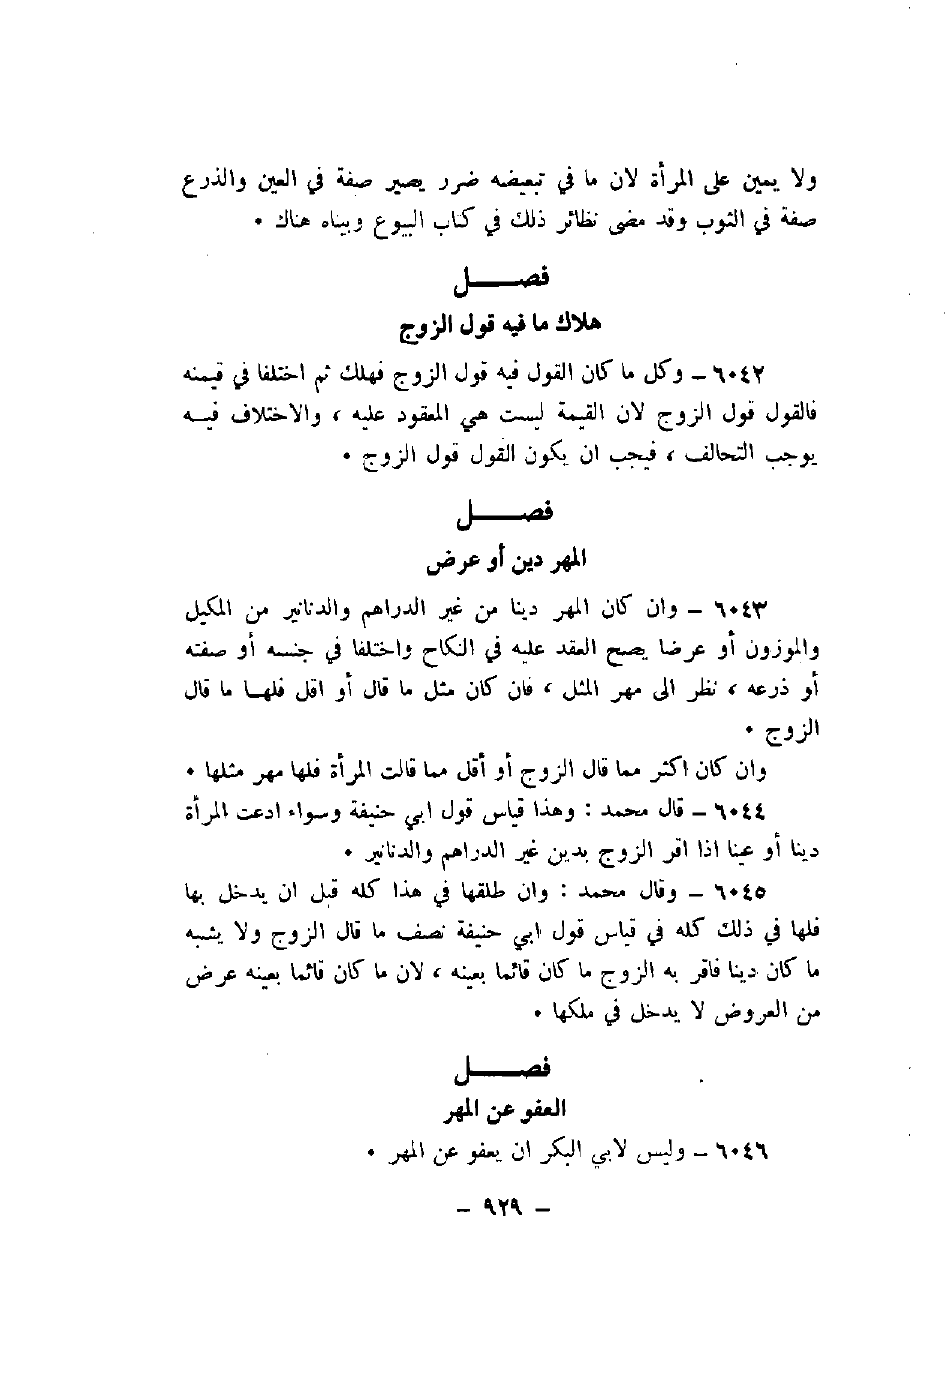 ولا يمين على المرأة لان ما في تبعيضه ضرر يصير صفة في العين والذرع
صفة في الثوب وقد مضى نظائر ذلك في كتاب البيوع وبيناه هناك ٠
فصـــــل
هلاك ما فيه قول الزوج
٦٠٤٢ – وكل ما كان القول فيه قول الزوج فهلك ثم اختلفا في قيمته
فالقول قول الزوج لان القيمة ليست هي المعقود عليه ، والاختلاف فيـه
يوجب التحالف ، فيجب ان يكون القول قول الزوج ٠
فصـــــل
المهر دين أو عرض
٦٠٤٣ – وان كان المهر دينا من غير الدراهم والدنانير من المكيل
والموزون أو عرضا يصح العقد عليه في النكاح واختلفا في جنسه أو صفته
أو ذرعه ، نظر الى مهر المثل ، فان كان مثل ما قال أو اقل فلهـا ما قال
الزوج ٠
وان كان اكثر مما قال الزوج أو أقل مما قالت المرأة فلها مهر مثلها ٠
٦٠٤٤ – قال محمد : وهذا قياس قول ابي حنيفة وسواء ادعت المرأة
دينا أو عينا اذا اقر الزوج بدين غير الدراهم والدنانير ٠
٦٠٤٥ – وقال محمد : وان طلقها في هذا كله قبل ان يدخل بها
فلها في ذلك كله في قياس قول ابي حنيفة نصف ما قال الزوج ولا يشبه
ما كان دينا فاقر به الزوج ما كان قائما بعينه ، لان ما كان قائما بعينه عرض
من العروض لا يدخل في ملكها ٠
فصـــــل
العفو عن المهر
٦٠٤٦ – وليس لابي البكر ان يعفو عن المهر ٠
– ٩٢٩ –